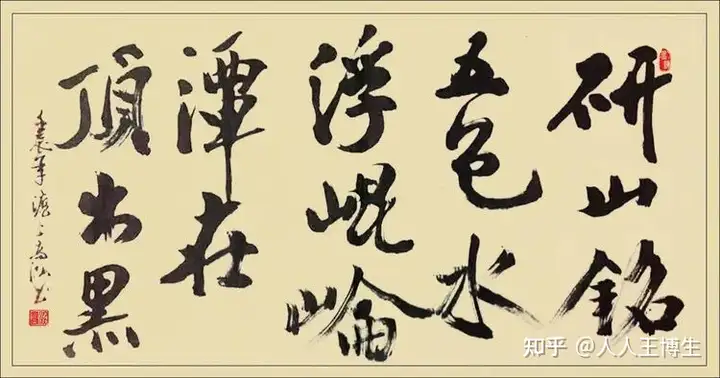 研山銘
五色水
浮崐崘
潭在
頂出黑
壬辰年
知乎 @人人王博生